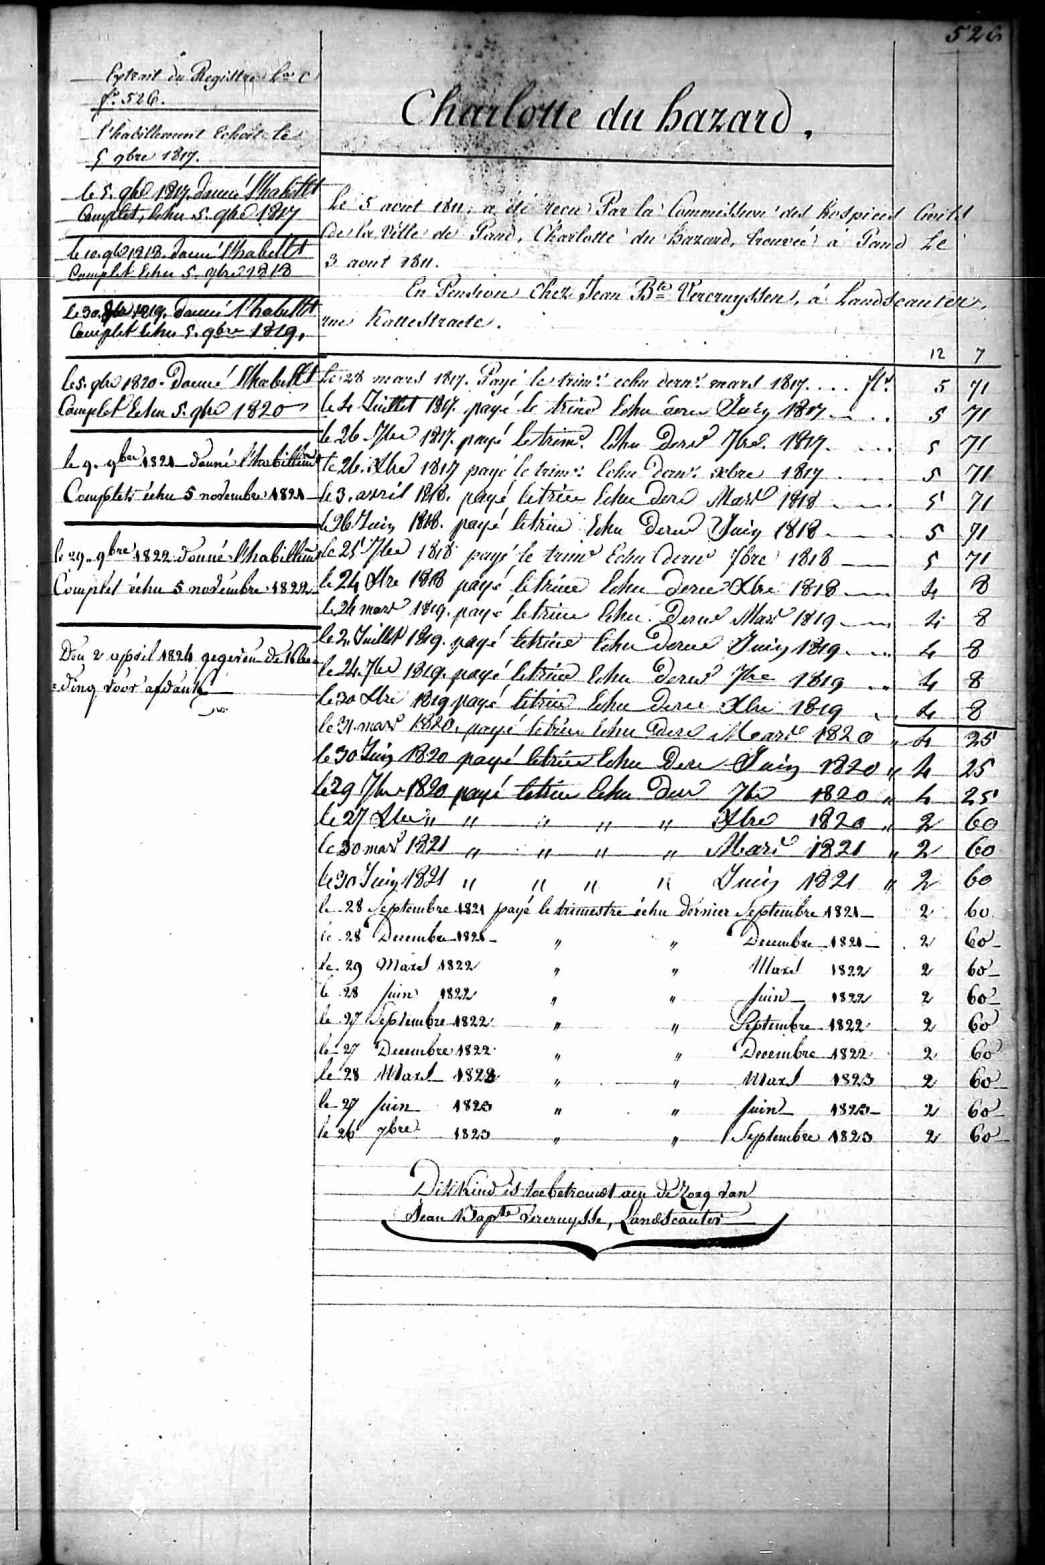 526
Extrait du Registre L.re C
f.o 526.
l'habillement Echoit le
5 9bre 1817.
le 5. 9bre 1817. donné l'habillt
Complet, Echu 5. 9bre 1817
le 10. 9bre 1818. donné l'habillt
Complet Echu 5. 9bre 1818
le 30. 1819. donné l'habillt
Complet Echu 5. 9bre 1819.
le 5. 9bre 1820. Donné l'habillt
Complet Echu 5. 9bre 1820
le 9. 9bre 1821 donné l'habillem
Complet échu 5 novembre 1821
le 29. 9bre 1822 donné l'habillem
Complet échu 5 novembre 1822
Den 2 april 1824 gegeven de klee-
=ding voor afdank
Charlotte du hazard.
Le 5 aout 1811, a été recu Par la Commission des hospices Civils
De la Ville de Gand, Charlotte du hazard, trouvée à Gand Le
3 aout 1811.
En Pension Chez Jean Bte Vercruyssen, à Landscauter,
rue Kattestraete.
12 7
Le 28 mars 1817. Payé le trim.e echu dern.r mars 1817. . . . fl.s 5 71
le 2 Juillet 1817. payé le trime Echu dere Juin 1817 5 71
le 26 7bre 1817. payé le trime. Echu Derer 7bre. 1817. 5 71
le 26. xbre 1817 payé le trim.e Echu dern.r xbre 1817 5 71
le 3. avril 1818. payé le trime Echu dere Mars 1818 5 71
le 26 Juin 1818. payé le trime Echu Derer Juin 1818 5 71
le 25 7bre 1818 payé le trime Echu derer 7bre 1818 5 71
le 24 Xbre 1818 payé le trime Echu derer Xbre 1818 4 8
le 24 mars 1819. payé le trime Echu Derer Mars 1819 4 8
le 2 Juillet 1819. payé le trime Echu derer Juin 1819 4 8
le 24. 7bre 1819. payé le trime Echu derer 7bre 1819 4 8
le 30 Xbre 1819 payé le trime Echu derer Xbre 1819 4 8
le 31 mars 1820. payé le trime Echu Dere Mars 1820 " 4 25
le 30 Juin 1820 payé le trime Echu Dere Juin 1820 " 4 25
le 29 7bre 1820 payé le trime Echu Der 7bre 1820 " 4 25
le 27 Xbre " " " " " Xbre 1820 " 2 60
le 30 mars 1821 " " " " Mars 1821 " 2 60
le 30 Juin 1821 " " " " Juin 1821 " 2 60
le 28 Septembre 1821 payé le trimestre échu dernier Septembre 1821 2 60
le 28 Decembre 1821 " " Decembre 1821 2 60
le 29 Mars 1822 " " Mars 1822 2 60
le 28 juin 1822 " " juin 1822 2 60
le 27 Septembre 1822 " " Septembre 1822 2 60
le 27 Decembre 1822 " " Decembre 1822 2 60
le 28 Mars 1823 " " Mars 1823 2 60
le 27 juin 1823 " " juin 1823 2 60
le 26 7bre 1823 " " Septembre 1823 2 60
Dit Kind is toebetrouwt aen de Zorg van
Jean Bapte Vercruysse, Landscauter